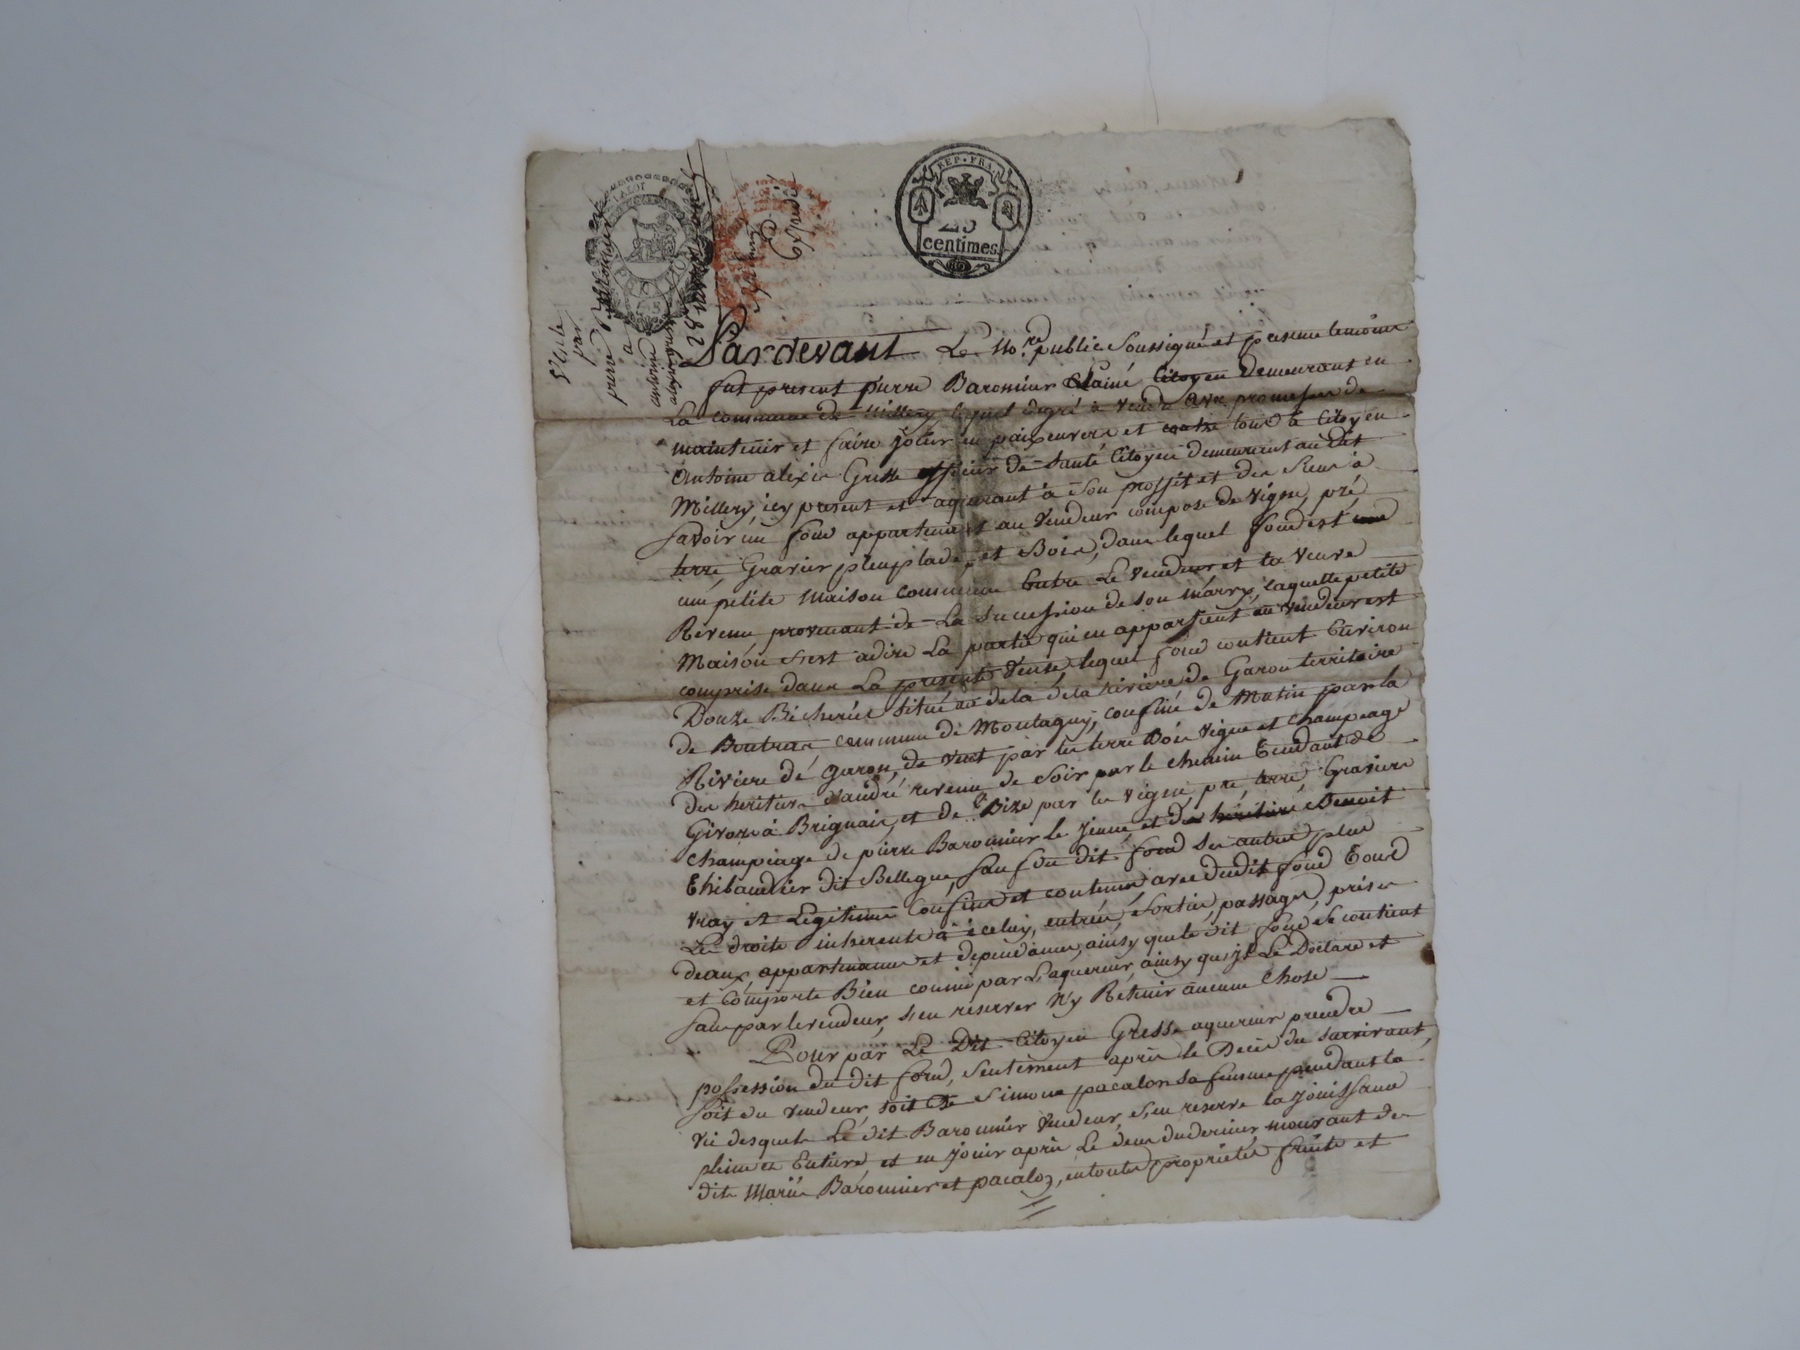 REP. FRA.
25
centimes.
Vente
par
pierre Baronnier
a
antoine
Expedié
Pardevant Le No.re public Soussigné et presens temoins
fut present pierre Baronnier Lainé Citoyen demeurant en
La commune de Millery lequel degré a vendu avec promesse de
maintenir et faire jouir en paix envers et contre tous a Citoyen
Antoine alexis Gresse officier de Santé Citoyen demeurant au dit
Millery, icy present et aquerant à Son proffit et des Siens à
Savoir, un fond appartenant au vendeur composé de vigne, pré
terre Gravier pleuplade, et Bois, dans lequel fond est
une petite Maison commune Entre Le vendeur et la veuve
Revenu provenant de La Succession de son marry, laquelle petite
Maison c'est adire La partie qui en appartient au vendeur est
comprise dans La presente vente, lequel fond contient Environ
Douze Bicherées Situé au dela de la Riviere de Garon territoire
de Boutras commune de Montagny, confiné de Matin par la
Riviere de garon, de vent par les terre Bois vigne et champéage
des heritiers d'andré revenu de Soir par le chemin Tendant de
Givors à Brignais, et de Bize par les vigne, pré, terre, Graviers
champéage de pierre Baronnier le jeune, et des héritiers Benoit
Thibaudier dit Bellegue, Sauf du dit fond Ses autres plus
vray et Legitimes Confins et contenue avec dudit fond Tous
Les droits inherents à iceluy, entrées, Sorties, passages, prises
deaux, appartenances et dependances, ainsy que le dit fond Se contient
et Comporte Bien connu par L'aquereur, ainsy qu'il Le Déclare et
Sans par le vendeur, s'en reserver N'y Retenir aucune chose
Pour par Le Dit Citoyen Gresse aquereur prendre
possession du dit fond, Seulement après le Décès du Survivant,
Soit du vendeur, soit de Simone pacalon Sa femme pendant la
vie desquels Le dit Baronnier vendeur, s'en reserve la jouissance
pleine et Entiere, et en jouir après Le deces du dernier mourant des
dits Mariés Baronnier et pacalon, en toutes proprietés fruits et